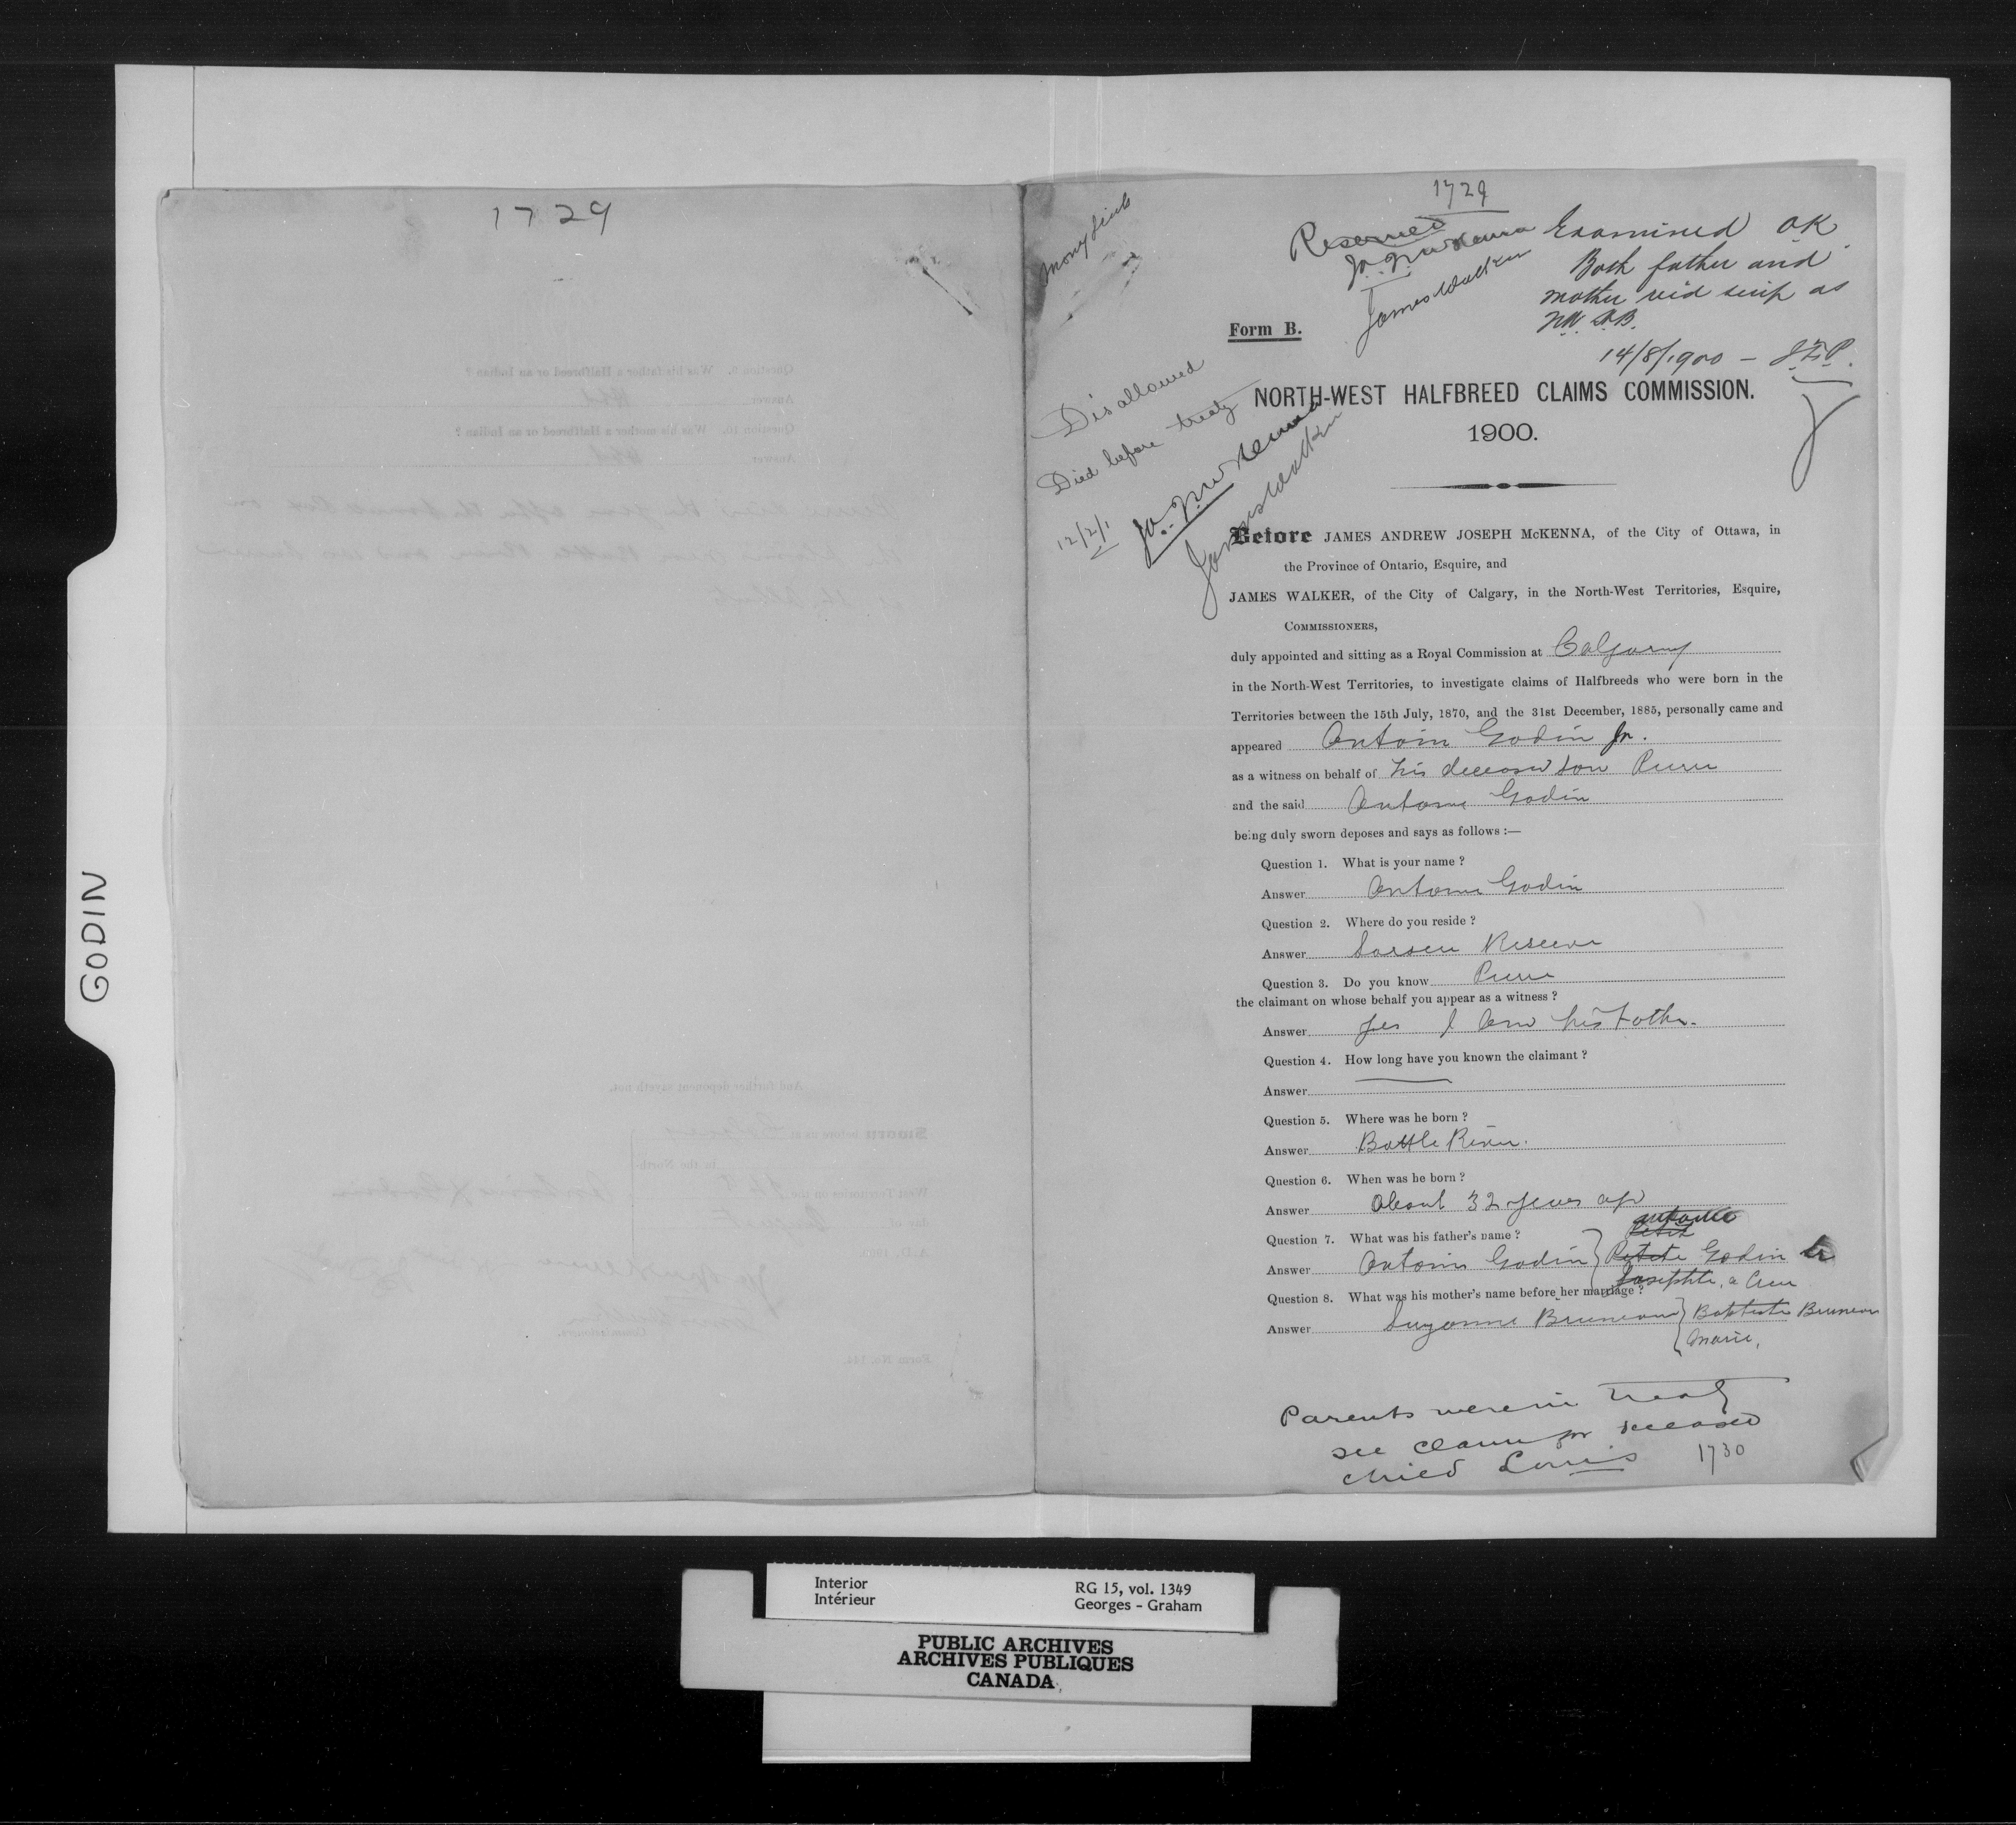 GODIN
1729
1729
Money Scrip
Reserved
J. A. J. McKenna
James Walker
Examined OK
Both father and
mother rec'd scrip as
N.W. H.B.
14/8/1900 –
Form B.
Disallowed
Died before treaty
12/2/1
J. A. J. McKenna
James Walker
NORTH-WEST HALFBREED CLAIMS COMMISSION.
1900.
Before JAMES ANDREW JOSEPH McKENNA, of the City of Ottawa, in
the Province of Ontario, Esquire, and
JAMES WALKER, of the City of Calgary, in the North-West Territories, Esquire,
COMMISSIONERS,
duly appointed and sitting as a Royal Commission at Calgary
in the North-West Territories, to investigate claims of Halfbreeds who were born in the
Territories between the 15th July, 1870, and the 31st December, 1885, personally came and
appeared Antoin Godin Jr.
as a witness on behalf of his deceased son Pierre
and the said Antoine Godin
being duly sworn deposes and says as follows :—
Question 1. What is your name ?
Answer Antoine Godin
Question 2. Where do you reside ?
Answer Sarsee Reserve
Question 3. Do you know Pierre
the claimant on whose behalf you appear as a witness ?
Answer Yes I am his Father.
Question 4. How long have you known the claimant ?
Answer
Question 5. Where was he born ?
Answer Battle River.
Question 6. When was he born ?
Answer About 32 years ago
Antoine
Petit
Question 7. What was his father's name ?
Answer Antoine Godin } Petite Godin Sr
Josephte, a Cree
Question 8. What was his mother's name before her marriage ?
Answer Suzanne Bruneau } Baptiste Bruneau
Marie,
Parents were in treaty
see claim for deceased
child Louis 1730
Interior
Intérieur
RG 15, vol. 1349
Georges - Graham
PUBLIC ARCHIVES
ARCHIVES PUBLIQUES
CANADA